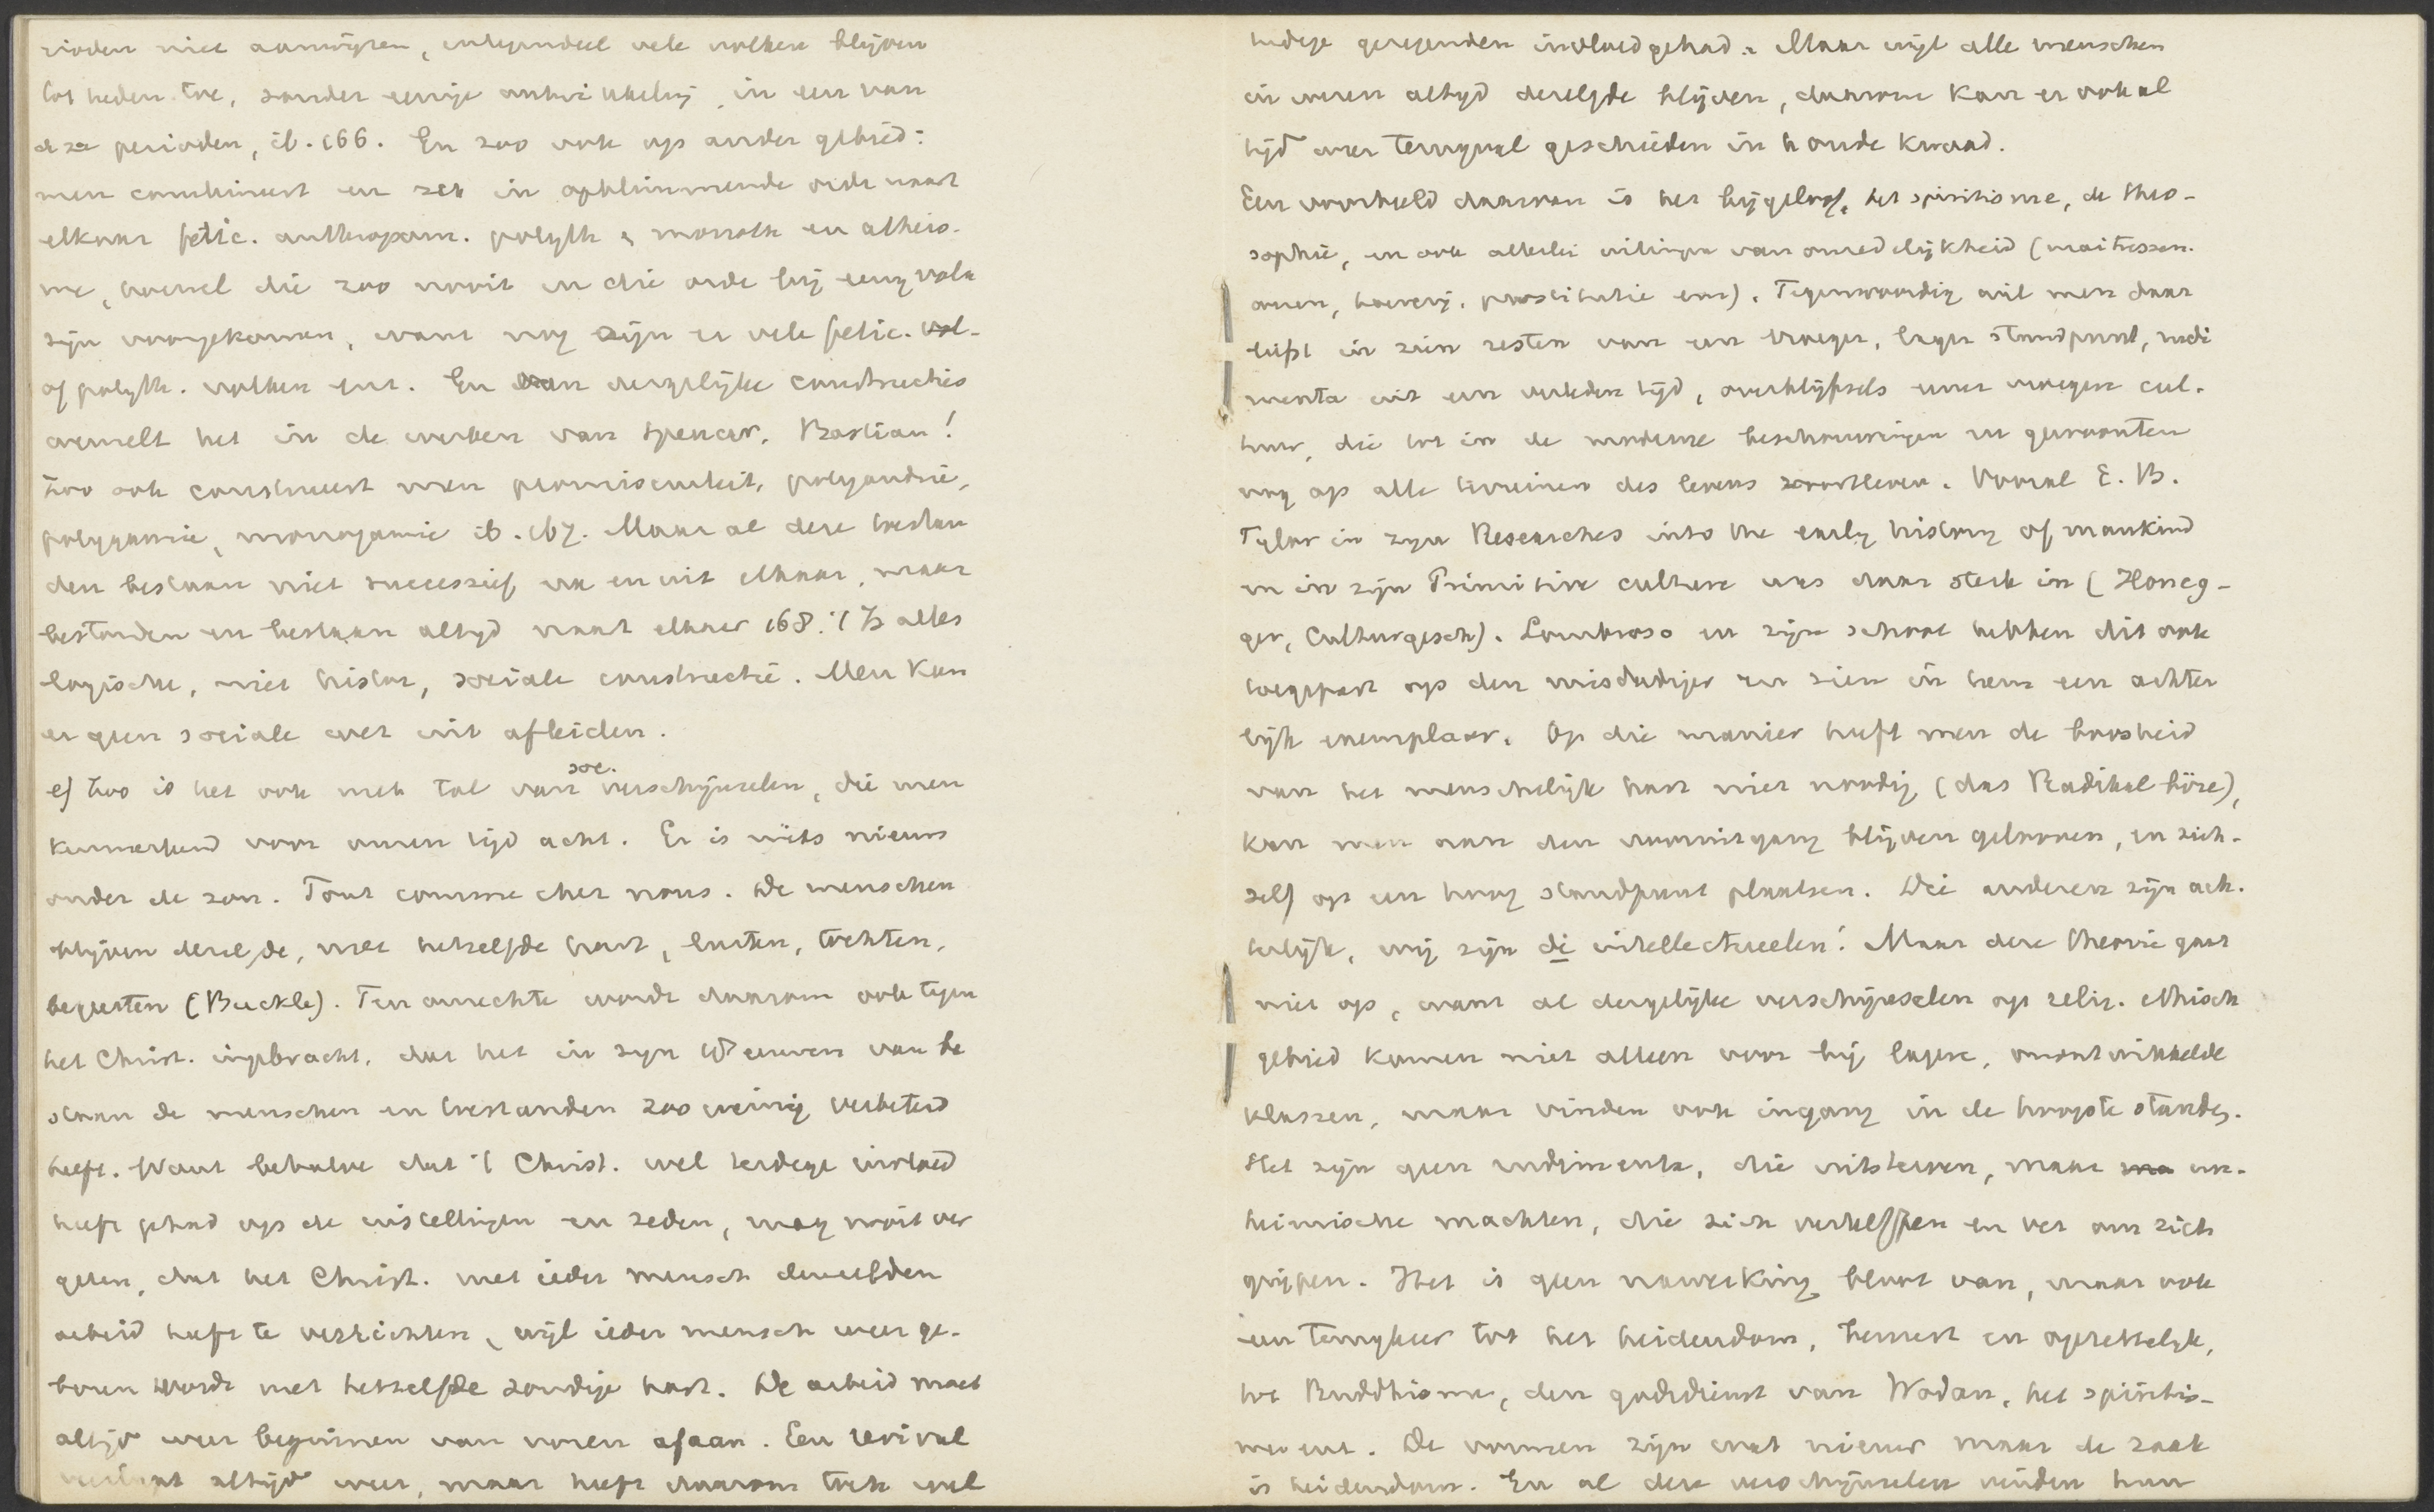 rioden niet aanwijzen, integendeel vele volken blijven
tot heden toe, zonder eenige ontwikkeling, in een van
deze perioden, ib. 166. En zoo ook op ander gebied:
men combineert en zet in opklimmende orde naast
elkaar fetic. anthropom. polyth. monoth. en atheis-
me, hoewel die zoo nooit in die orde bij eenig volk
zijn voorgekomen, want nog zijn er vele fetic. vol-
of polyth. volken enz. En van dergelijke constructies
wemelt het in de werken van Spencer, Bastian!
Zoo ook construeert men promiscuiteit, polyandrie,
polygamie, monogamie ib. 167. Maar al deze bestan
den bestaan niet successief na en uit elkaar, maar
bestonden en bestaan altijd naast elkaar 168. 't Is alles
logische, niet histor, sociale constructie. Men kan
er geen sociale wet uit afleiden.
e) Zoo is het ook met tal van soc. verschijnselen, die men
kenmerkend voor onzen tijd acht. Er is niets nieuws
onder de zon. Tout comme chez nous. De menschen
blijven dezelfde, met hetzelfde hart, lusten, tochten,
begeerten (Buckle). Ten onrechte wordt daarom ook tegen
het Christ. ingebracht, dat het in zijn eeuwen van be
staan de menschen en toestanden zoo weinig verbeterd
heeft. Want behalve dat 't Christ. wel terdege invloed
heeft gehad op de instellingen en zeden, mag nooit ver
geten, dat het Christ. met ieder mensch denzelfden
arbeid heeft te verrichten, wijl ieder mensch weer ge-
boren wordt met hetzelfde zondige hart. De arbeid moet
altijd weer beginnen van voren afaan. Een revival
altijd weer, maar heeft daarom toch wel
terdege gezegenden invloed gehad. Maar wijl alle menschen
in wezen altijd dezelfde blijven, daarom kan er ook al
tijd weer terugval geschieden in h oude kwaad.
Een voorbeeld daarvan is het bijgeloof, het spiritisme, de theo-
sophie, en ook allerlei uitingen van onzedelijkheid (maitressen-
wezen, hoererij, prostitutie enz). Tegenwoordig wil men daar
liefst in zien resten van een vroeger, lager standpunt, rudi
menta uit een verleden tijd, overblijfsels eener vroegere cul-
tuur, die tot in de moderne beschouwingen en gewoonten
nog op alle terreinen des levens voortleven. Vooral E. B.
Tylor in zijn Researches into the early history of mankind
en in zijn Primitive culture was daar sterk in (Honeg-
ger, Culturgesch). Lombroso en zijn school hebben dit ook
toegepast op den misdadiger en zien in hem een achter
lijk exemplaar. Op die manier heeft men de boosheid
van het menschelijk hart niet noodig (das Radikal böse),
kan men aan den vooruitgang blijven gelooven, en zich-
zelf op een hoog standpunt plaatsen. Die anderen zijn ach-
terlijk, wij zijn di intellectueelen! Maar deze theorie gaat
niet op, want al dergelijke verschijnselen op relig. ethisch
gebied komen niet alleen voor bij lagere, onontwikkelde
klassen, maar vinden ook ingang in de hoogste standen.
Het zijn geen rudimenta, die uitsterven, maar in-
heimische machten, die zich verheffen en ver om zich
grijpen. Het is geen nawerking bloot van, maar ook
een terugkeer tot het heidendom, bewust en opzettelijk,
tot Buddhisme, den godsdienst van Wodan, het spiritis-
me enz. De vormen zijn wat nieuw maar de zaak
is heidendom. En al deze verschijnselen vinden hun